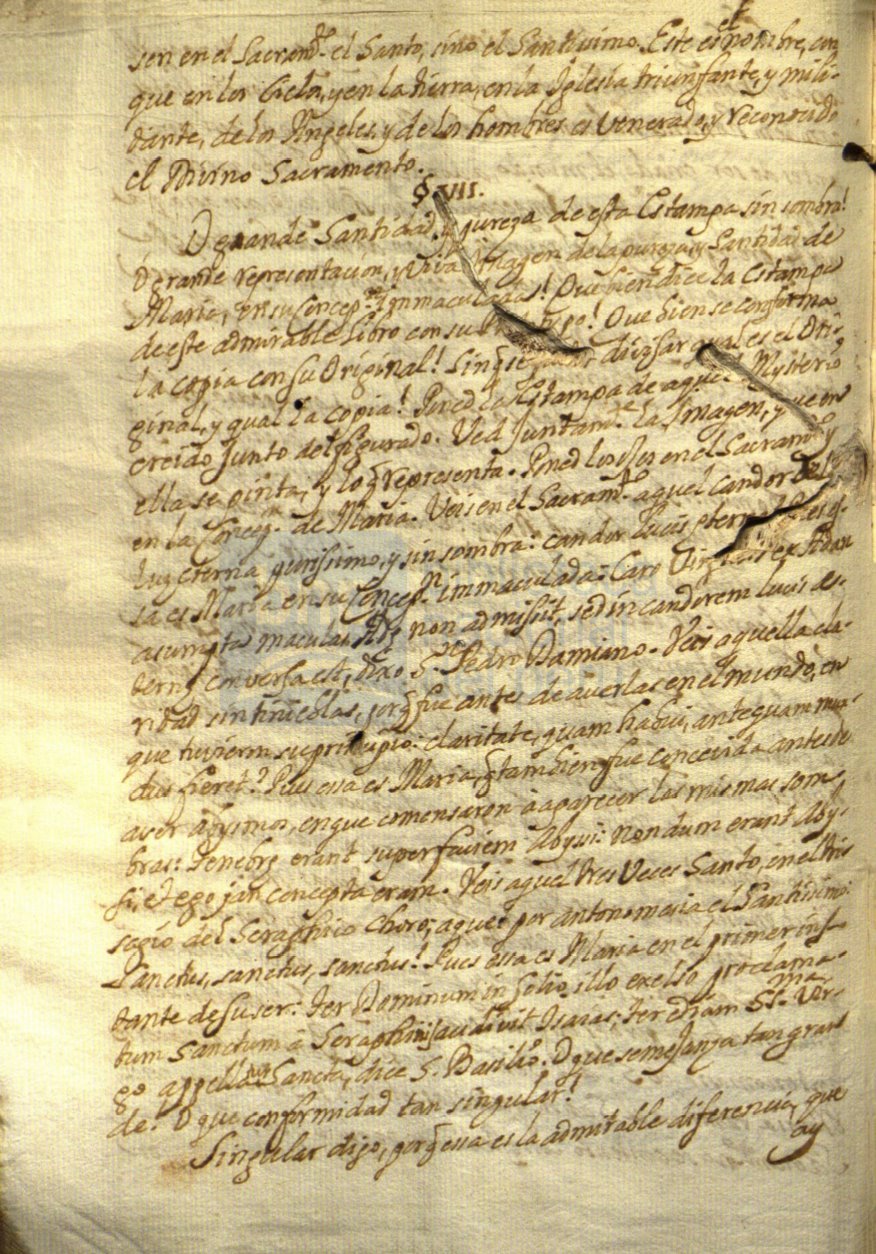 sen en el Sacram.to el Santo, sino el Santissimo. Este es el nombre, con
que en los Cielos, y en la tierra, en la Iglesia triunfante, y mili-
tante, de los Angeles, y de los hombres es Venerado, y reconocido
el Divino Sacramento.
§. VII.
O grande Santidad, y pureza de esta Estampa sin sombra!
O grande representacion, y viva Imagen de la pureza, y Santidad de
Maria, en su Concep.on immaculada! Que bien dice la Estampa
de este admirable Libro con su! Que bien se conforma
la copia con su Original! Sin q se divisar qual es el Ori-
ginal, y qual la copia! Poned la Estampa de aquel Mysterio
creido junto del figurado. Ved juntam.te la Imagen, y que en
ella se pinta, y lo q representa. Poned los ojos en el Sacram.to y
en la Concep.n de Maria. Veis en el Sacram.to aquel candor de la
luz eterna purissimo, y sin sombra: candor lucis
sa es Maria en su Concep.n immaculada: Caro Virginis ex Adam
asumpta maculas Adę non admissit, sed in candorem lucis ae-
ternę conversa est, dixo S. Pedro Damiano. Veis aquella cla-
ridad sin tinieblas, porq fue antes de averlas en el mundo, en
que tuvieron su principio: claritate, quam habui, antequam mun-
dus fieret? Pues essa es Maria, q tambien fue concevida antes de
aver abysmos, en que comensaron à aparecer las mismas som-
bras: Tenebrę erant super faciem Abyssi: Nondum erant Aby-
si, et ego jam concepta eram. Veis aquel tres Veces Santo, en el tris
segio del Seraphico Choro; aquel por antonomasia el Santissimo:
Sanctus, sanctus, sanctus! Pues essa es Maria en el primer ins-
tante de su ser: ter Dominum in solio illo excelso proclama-
tum Sanctum à Seraphinis audivit Isaias; ter etiam SS.ma Vir-
go appellatur Sancta, dice S. Basilio. O que semejanza tan gran
de! O que conformidad tan singular!
Singular dijo, porq essa es la admirable diferencia, que
ay